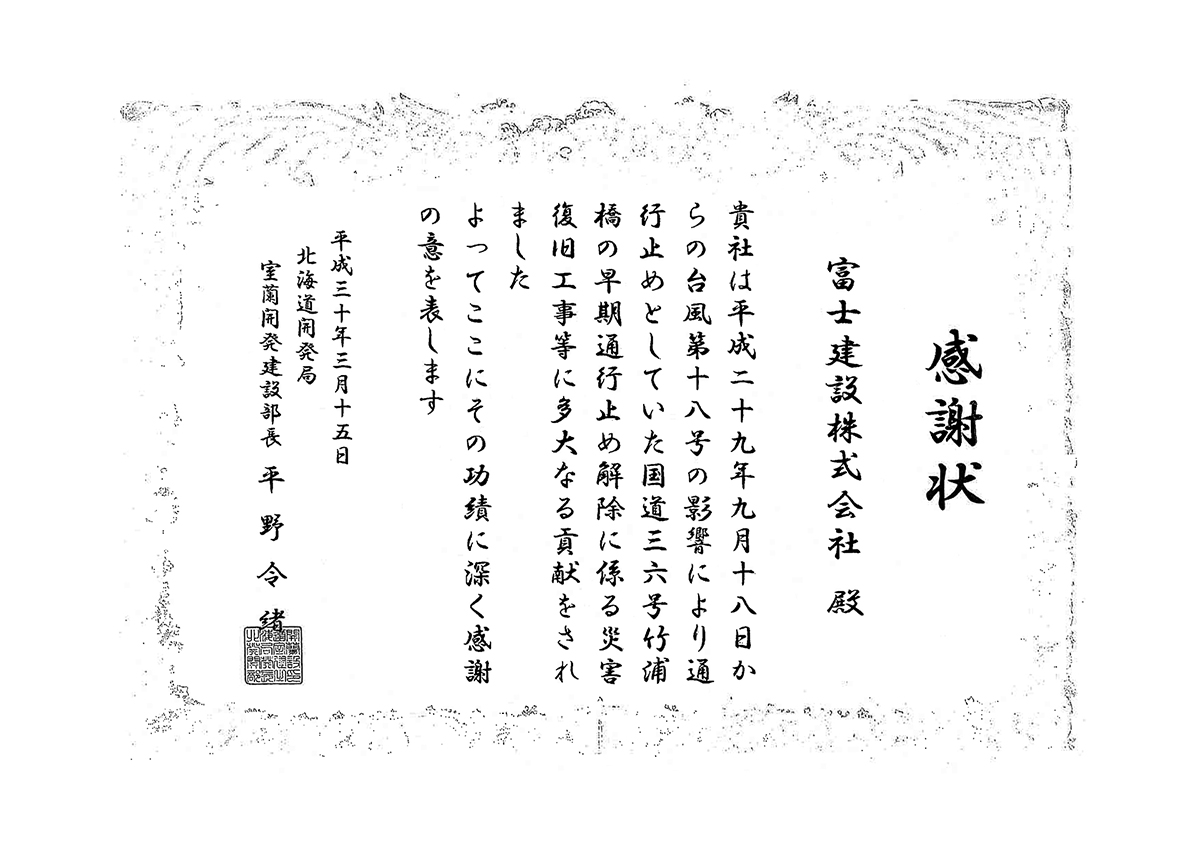 感謝状
富士建設株式会社 殿
貴社は平成二十九年九月十八日か
らの台風第十八号の影響により通
行止めとしていた国道三六号竹浦
橋の早期通行止め解除に係る災害
復旧工事等に多大なる貢献をされ
ました
よってここにその功績に深く感謝
の意を表します
平成三十年三月十五日
北海道開発局
室蘭開発建設部長 平野令緒